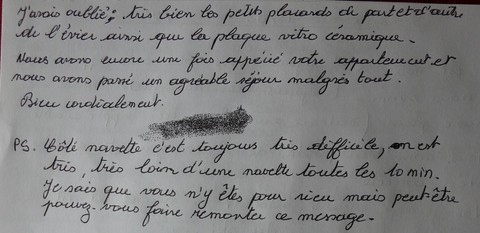 J'avais oublié ; très bien les petits placards de part et d'autre
de l'évier ainsi que la plaque vitro céramique.
Nous avons encore une fois apprécié votre appartement et
nous avons passé un agréable séjour malgrès tout.
Bien cordialement.
PS. Côté navette c'est toujours très difficile, on est
très, très loin d'une navette toutes les 10 min.
Je sais que vous n'y êtes pour rien mais peut-être
pouvez-vous faire remonter ce message.